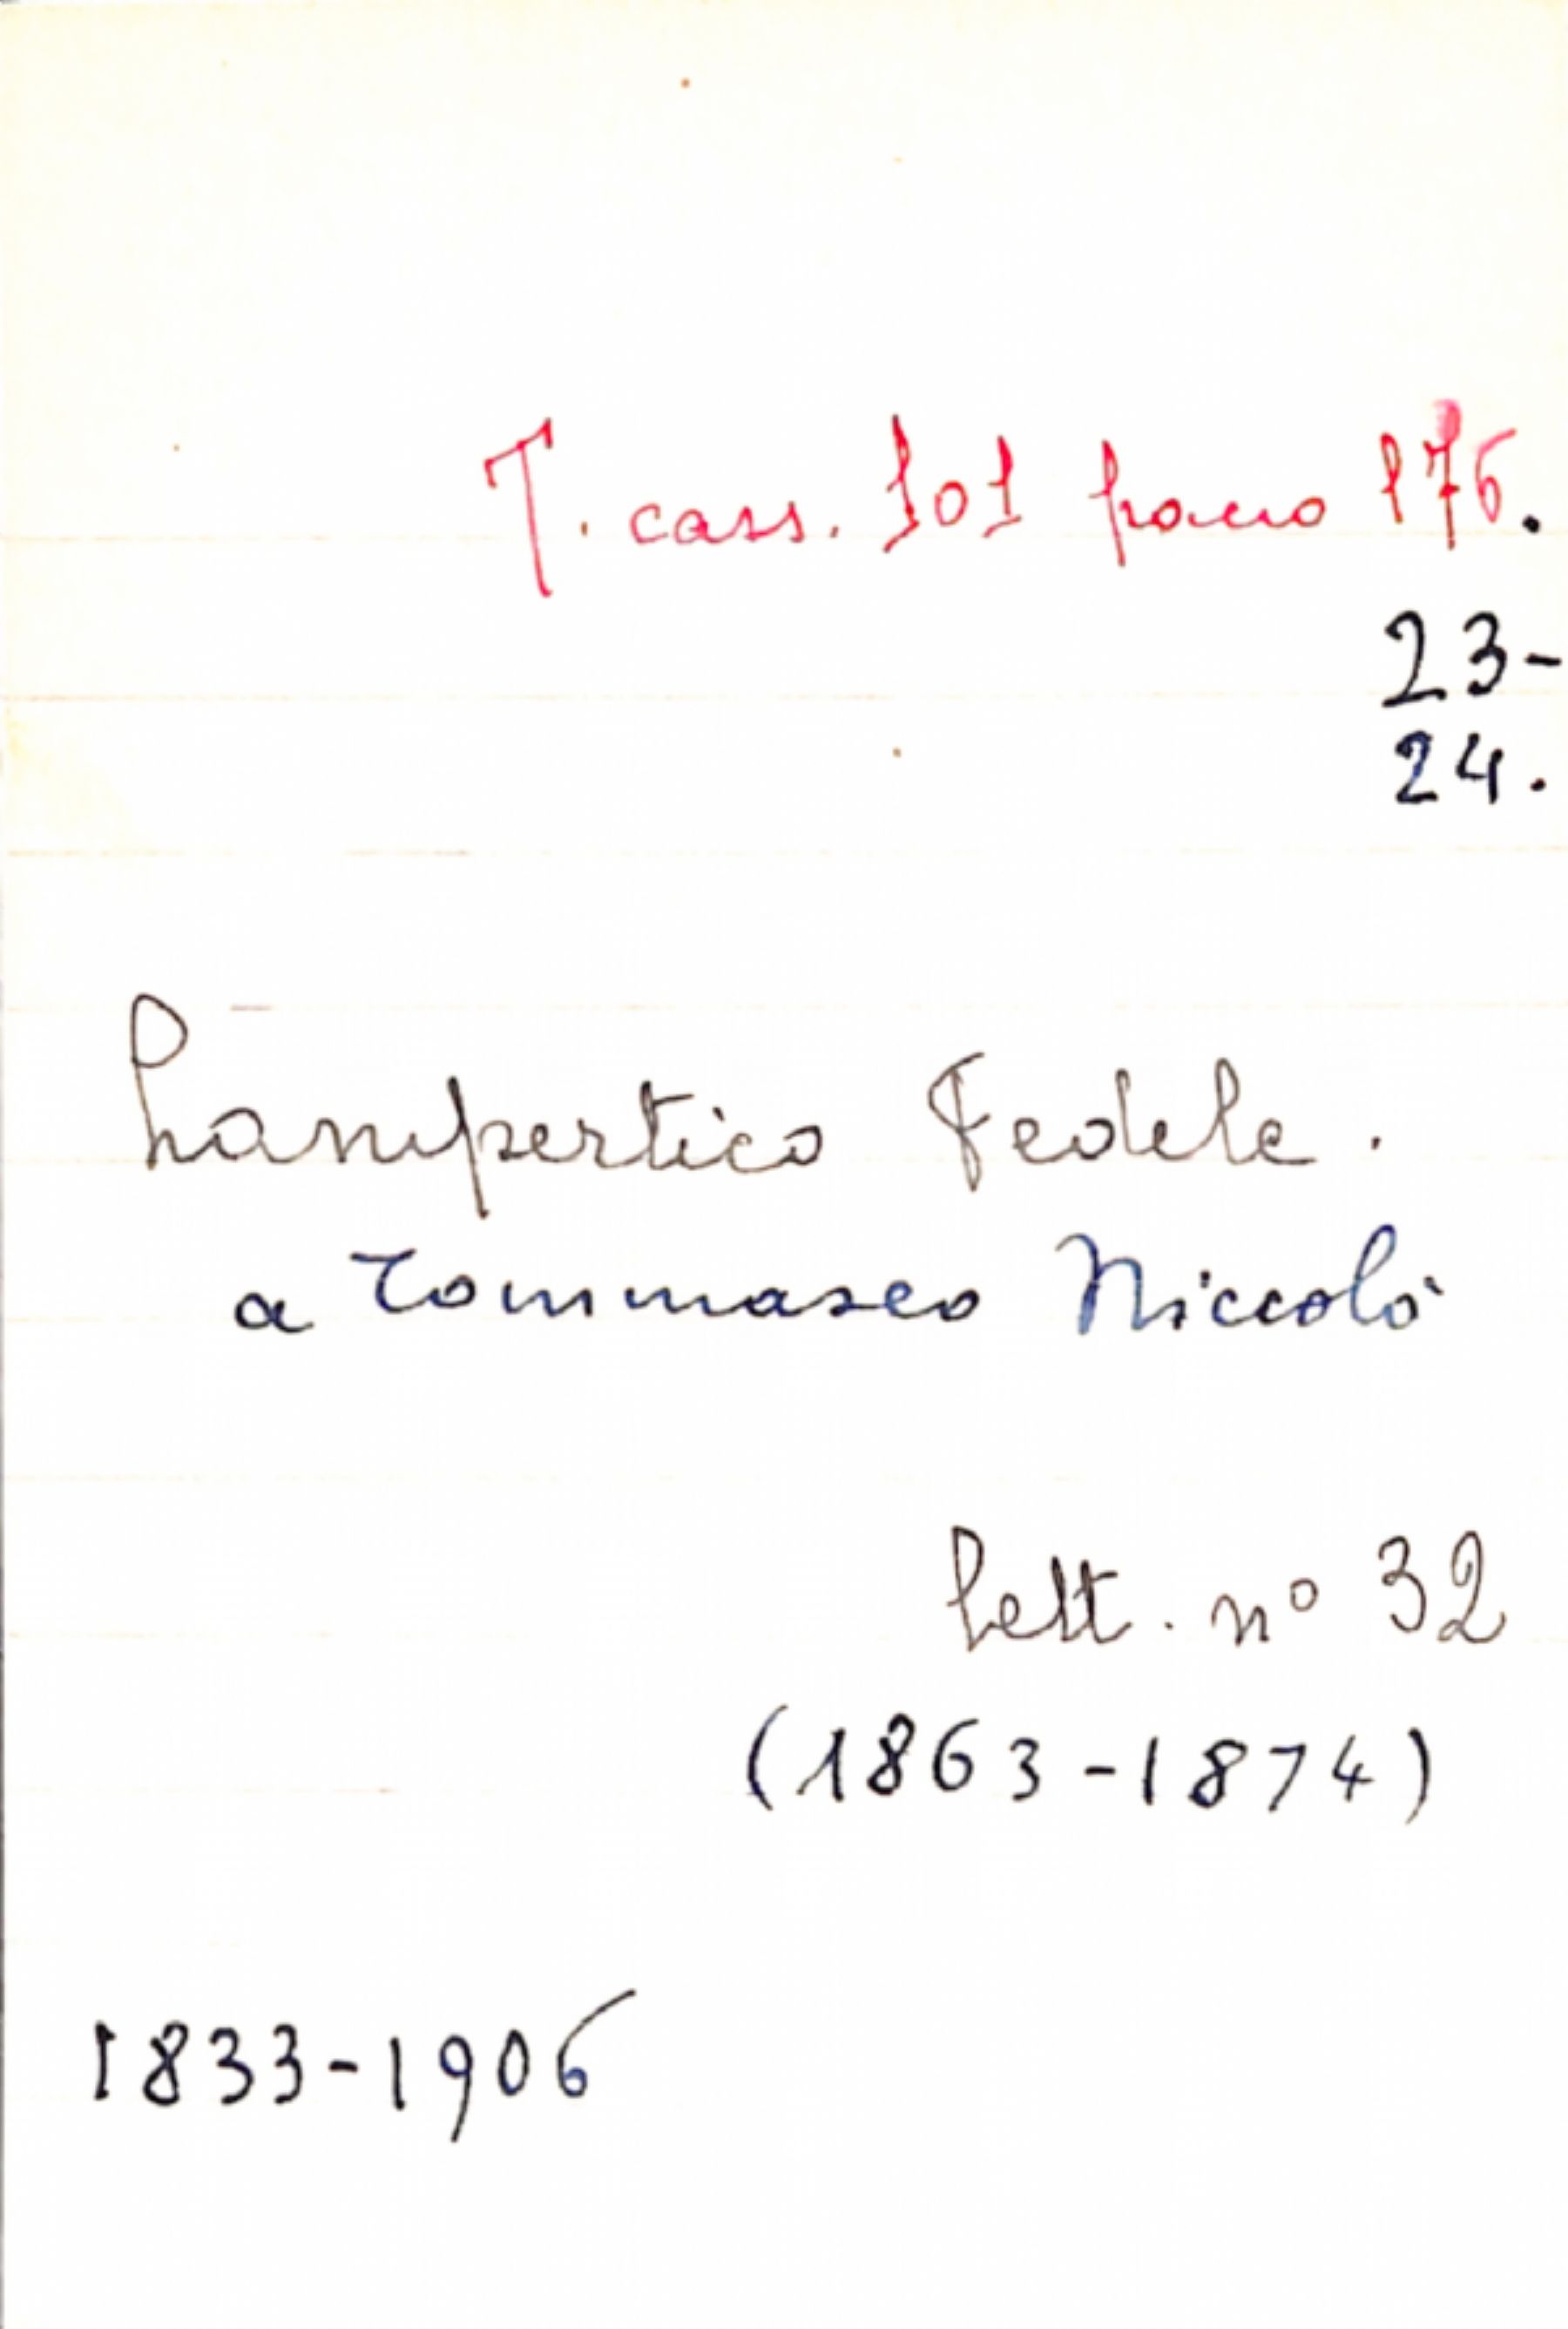 T. cass. 101 panno 176.
23-
24.
Lampertico Fedele.
a Tommaseo Niccolò
Lett. nº 32
(1863-1874)
1833-1906